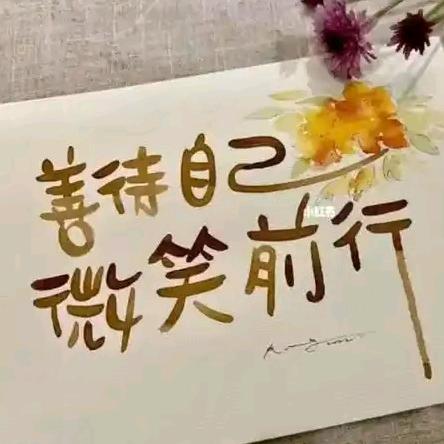 善待自己
小红书
微笑前行